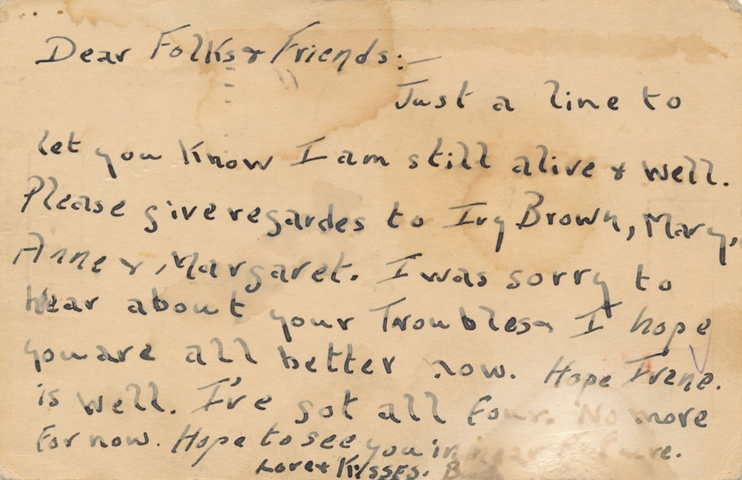 Dear Folks & Friends:—
Just a line to
let you know I am still alive & well.
Please give regardes to Ivy Brown, Mary,
Anne & Margaret. I was sorry to
hear about your Troubles I hope
you are all better now. Hope Irene.
is well. I've got all four. No more
for now. Hope to see you in near future.
Love & Kisses.